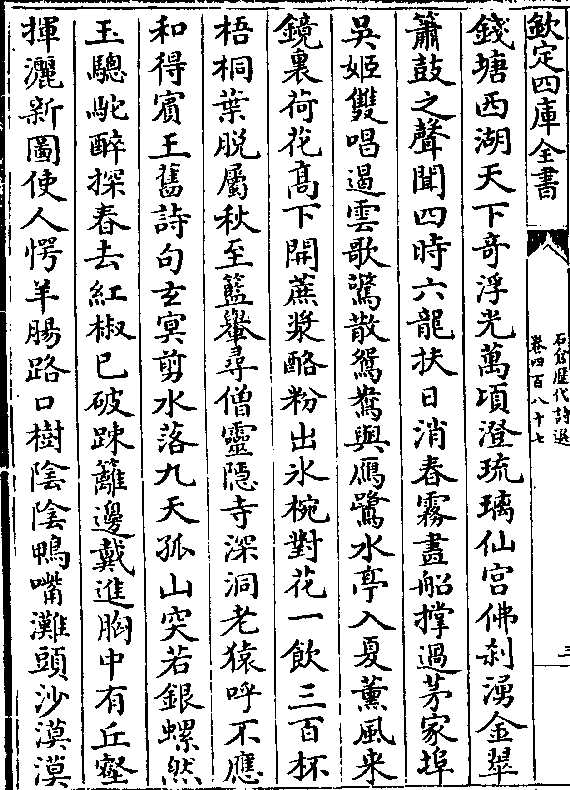 欽定四庫全書
石倉歷代詩選
卷四百八十七
三
錢塘西湖天下奇浮光萬頃澄琉璃仙宮佛刹湧金翠
簫鼓之聲聞四時六龍扶日消春霧畫船撑過茅家埠
吳姬雙唱遏雲歌驚散鴛鴦與鴈鷺水亭入夏薰風来
鏡裏荷花高下開蔗漿酪粉出氷椀對花一飲三百杯
梧桐葉脱屬秋至籃轝尋僧靈隱寺深洞老猿呼不應
和得賓王舊詩句玄冥剪水落九天孤山突若銀螺然
玉驄馱醉探春去紅椒已破踈籬邊戴進胸中有丘壑
揮灑新圖使人愕羊腸路口樹陰陰鴨嘴灘頭沙漠漠